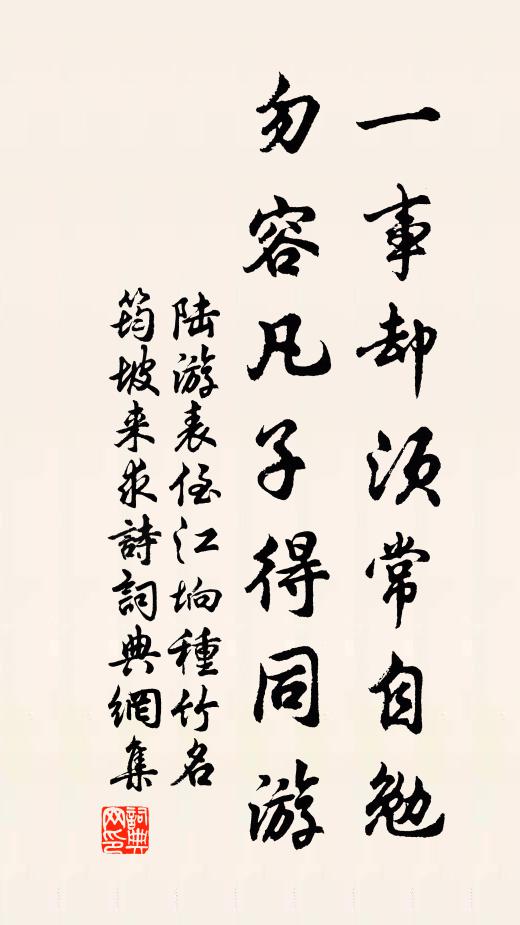 一事却須常自勉
勿容凡子得同游
陆游表侄江垧種竹名
筠坡来求詩詞典網集
詞典网印